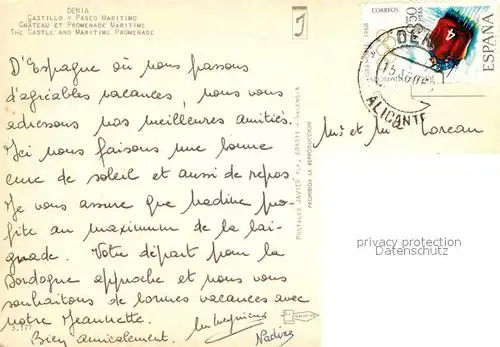 DENIA
CASTILLO Y PASEO MARITIMO
CHÂTEAU ET PROMENADE MARITIME
THE CASTLE AND MARITIME PROMENADE
D'Espagne où nous passons
d'agréables vacances, nous vous
adressons nos meilleures amitiés.
Ici nous faisons une bonne
cure de soleil et aussi de repos.
Je vous assure que Nadine pro-
fite au maximum de la bai-
gnade. Votre départ pour la
Dordogne approche et nous vous
souhaitons de bonnes vacances avec
notre Jeannette.
Bien amicalement.
Nadine
POSTALES JAVIER TEL. VALENCIA
PROHIBIDA LA REPRODUCCION
CORREOS
3'50
PTAS
ESPAÑA
GRENOBLE 1968
4
DENIA
ALICANTE
Mr et Mme Moreau
privacy protection
watermark